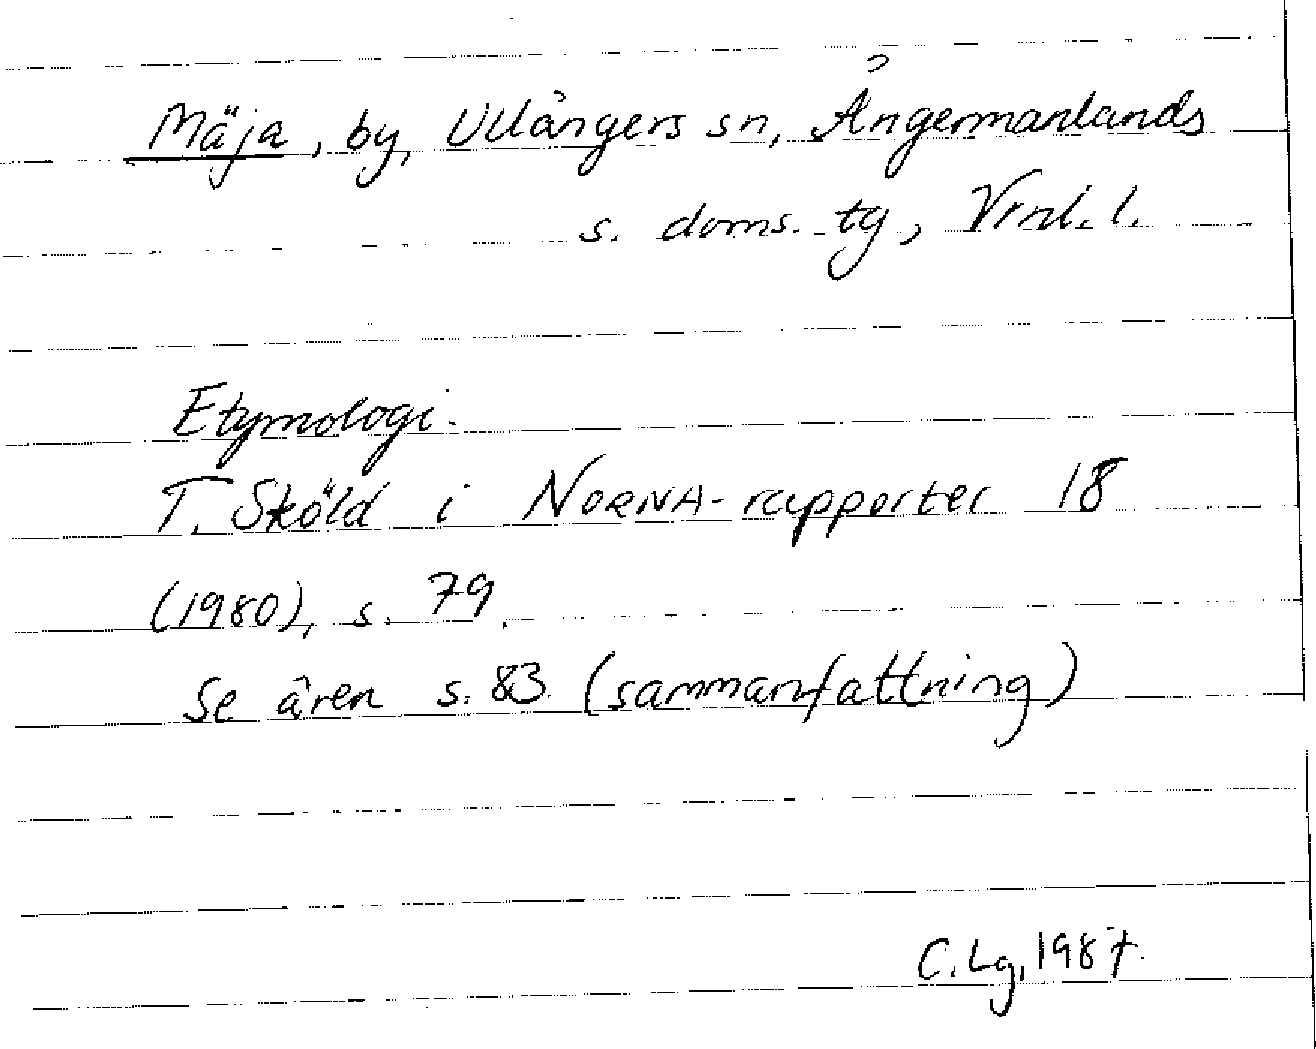 Mäja, by, Ullångers sn, Ångermanlands
s. doms. tg, Vrnl. l.
Etymologi.
T. Sköld i NORNA-rapporter 18
(1980), s. 79.
Se även s. 83 (sammanfattning)
C. Lg, 1987.